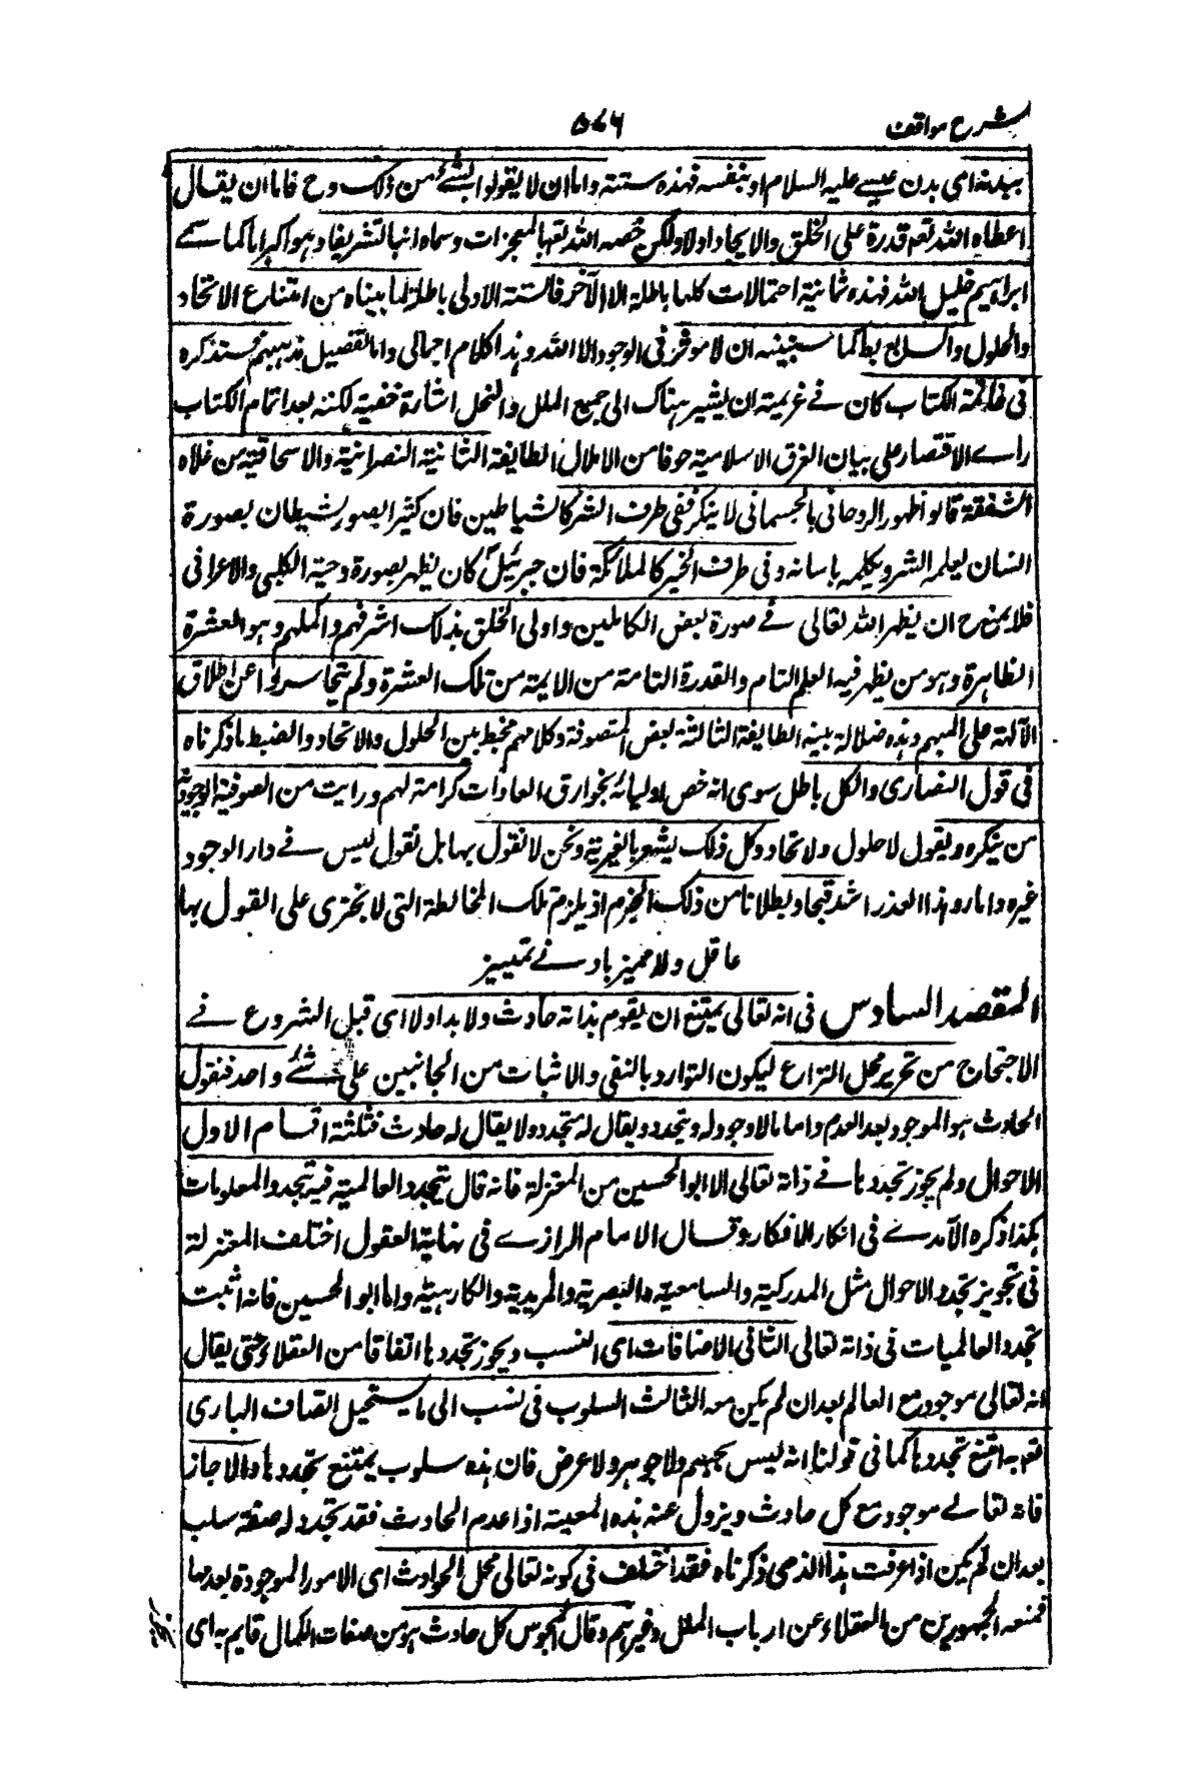 شرح مواقف
۵۷۶
ببدنه اى بدن عيسے عليه السلام او بنفسه فهذه ستة واما ان لا يقولوا بشئ من ذلك وح فاما ان يقال
اعطاه الله تعم قدرة على الخلق والايجاد اولا ولكن خصه الله تعم بالمعجزات وسماه ابنا تشريفا وهو اكراما كما سمے
ابراهيم خليل الله فهذه ثمانية احتمالات كلها باطلة الا الآخر فالستة الاولى باطلة لما بيناه من امتناع الاتحاد
والحلول والسابع بط كما سنبينه ان لا موثر فى الوجود الا الله وهذا كلام اجمالى واما تفصيل مذهبهم فستذكره
فى خاتمة الكتاب كان فے عزيمته ان يشير هناك الى جميع الملل والنحل اشارة خفية لكنه بعد اتمام الكتاب
راے الاقتصار على بيان الفرق الاسلامية خوفا من الاملال الطايفة الثانية النصرانية والاسحاقية من غلاة
الشفقة قالوا ظهور الروحانى بالجسمانى لا ينكر ففى طرف الشر كالشياطين فان كثيرا يصور شيطان بصورة
انسان ليعلمه الشر ويكلمه بلسانه وفى طرف الخير كالملائكة فان جبرئيل كان يظهر بصورة دحية الكلبى والاعرافى
فلا يمنع ح ان يظهر الله تعالى فے صورة بعض الكاملين واولى الخلق بذلك اشرفهم واكملهم وهو العشرة
الظاهرة وهو من يظهر فيه العلم التام والقدرة التامة من الايمة من تلك العشرة ولم يتحاسروا عن اطلاق
الآلهة على ائمتهم وهذه ضلالة بينة الطايفة الثالثة بعض المتصوفة وكلامهم مخبط بين الحلول والاتحاد والضبط ما ذكرناه
فى قول النصارى والكل باطل سوى انه خص اوليائه بخوارق العادات كرامة لهم ورايت من الصوفية الوجودية
من ينكره ويقول لا حلول ولا اتحاد وكل ذلك يشعر بالغيرية ونحن لا نقول بها بل نقول ليس فے دار الوجود
غيره ديار وهذا العذر اشد قبحا وبطلانا من ذلك الجرم اذ يلزم تلك المخالطة التى لا يجترى على القول بها
عاقل ولا مميز باد نے تمييز
المقصد السادس فى انه تعالى يمتنع ان يقوم بذاته حادث ولا بد اولا اى قبل الشروع فے
الاحتجاج من تحرير محل النزاع ليكون التوارد بالنفى والاثبات من الجانبين على شئے واحد فنقول
الحادث هو الموجود بعد العدم واما ما لا وجود له وتجدد ويقال له متجدد ولا يقال له حادث فثلثة اقسام الاول
الاحوال ولم يجوز تجددها فے ذاته تعالى الا ابو الحسين من المعتزلة فانه قال يتجدد العالمية فيه بتجدد المعلومات
هكذا ذكره الآمدے فى ابكار الافكار وقال الامام الرازے فى نهاية العقول اختلف المعتزلة
فى تجويز تجدد الاحوال مثل المدركية والسامعية والمبصرية والمريدية والكارهية واما ابو الحسين فانه اثبت
تجدد العالميات فى ذاته تعالى الثانى الاضافات اى النسب ويجوز تجددها اتفاقا من العقلاء حتى يقال
انه تعالى موجود مع العالم بعد ان لم يكن معه الثالث السلوب فى نسب الى ما يستحيل اتصاف البارى
تعم به امتنع تجددها كما فى قولنا انه ليس بجسم ولا جوهر ولا عرض فان هذه سلوب يمتنع تجددها والا جاز
فانه تعالے موجود مع كل حادث ويزول عنه هذه المعية اذا عدم الحادث فقد تجدد له صفة سلب
بعد ان لم يكن اذا عرفت هذا الذى ذكرناه فقد اختلف فى كونه تعالى محل الحوادث اى الامور الموجودة بعد عدمها
فمنعه الجمهور من العقلاء من ارباب الملل وغيرهم وقال المجوس كل حادث هو من صفات الكمال قايم به اى